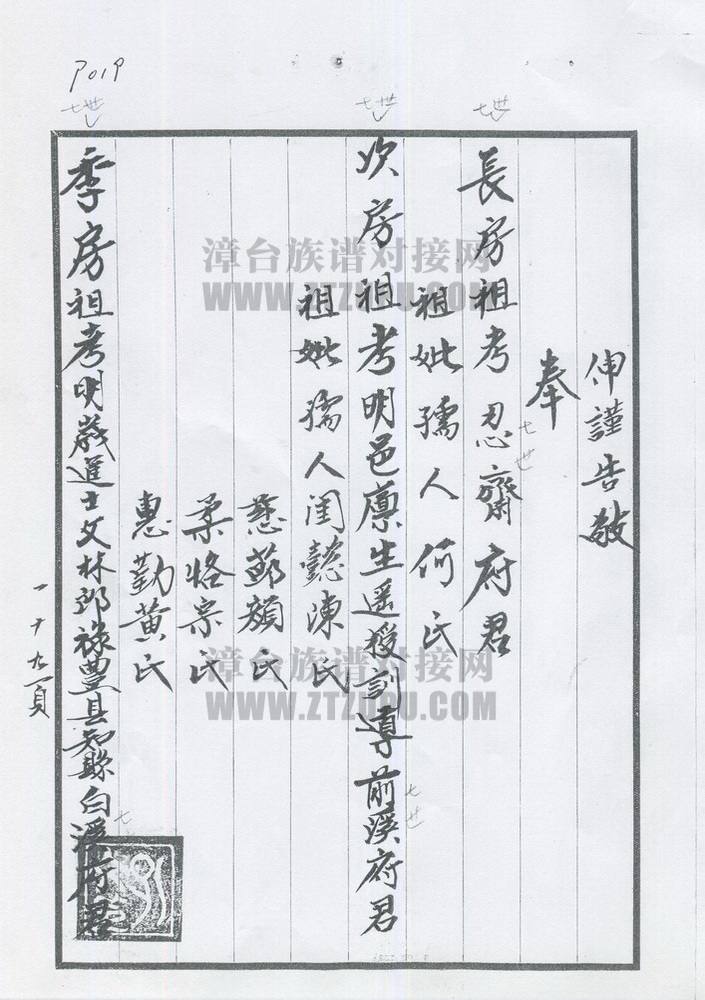 P019
伸謹告敬
奉
七世
長房祖考忍齋府君
七世
祖妣孺人何氏
七世
次房祖考明邑廪生遥授訓導前溪府君
七世
祖妣孺人閨懿陳氏
慈 顏氏
柔恪宗氏
惠勤黄氏
七世
季房祖考明歲進士文林郎祿豊县知縣白溪府君
七
一十九頁
漳台族谱对接网
WWW.ZTZUPU.COM
漳台族谱对接网
WWW.ZTZUPU.COM